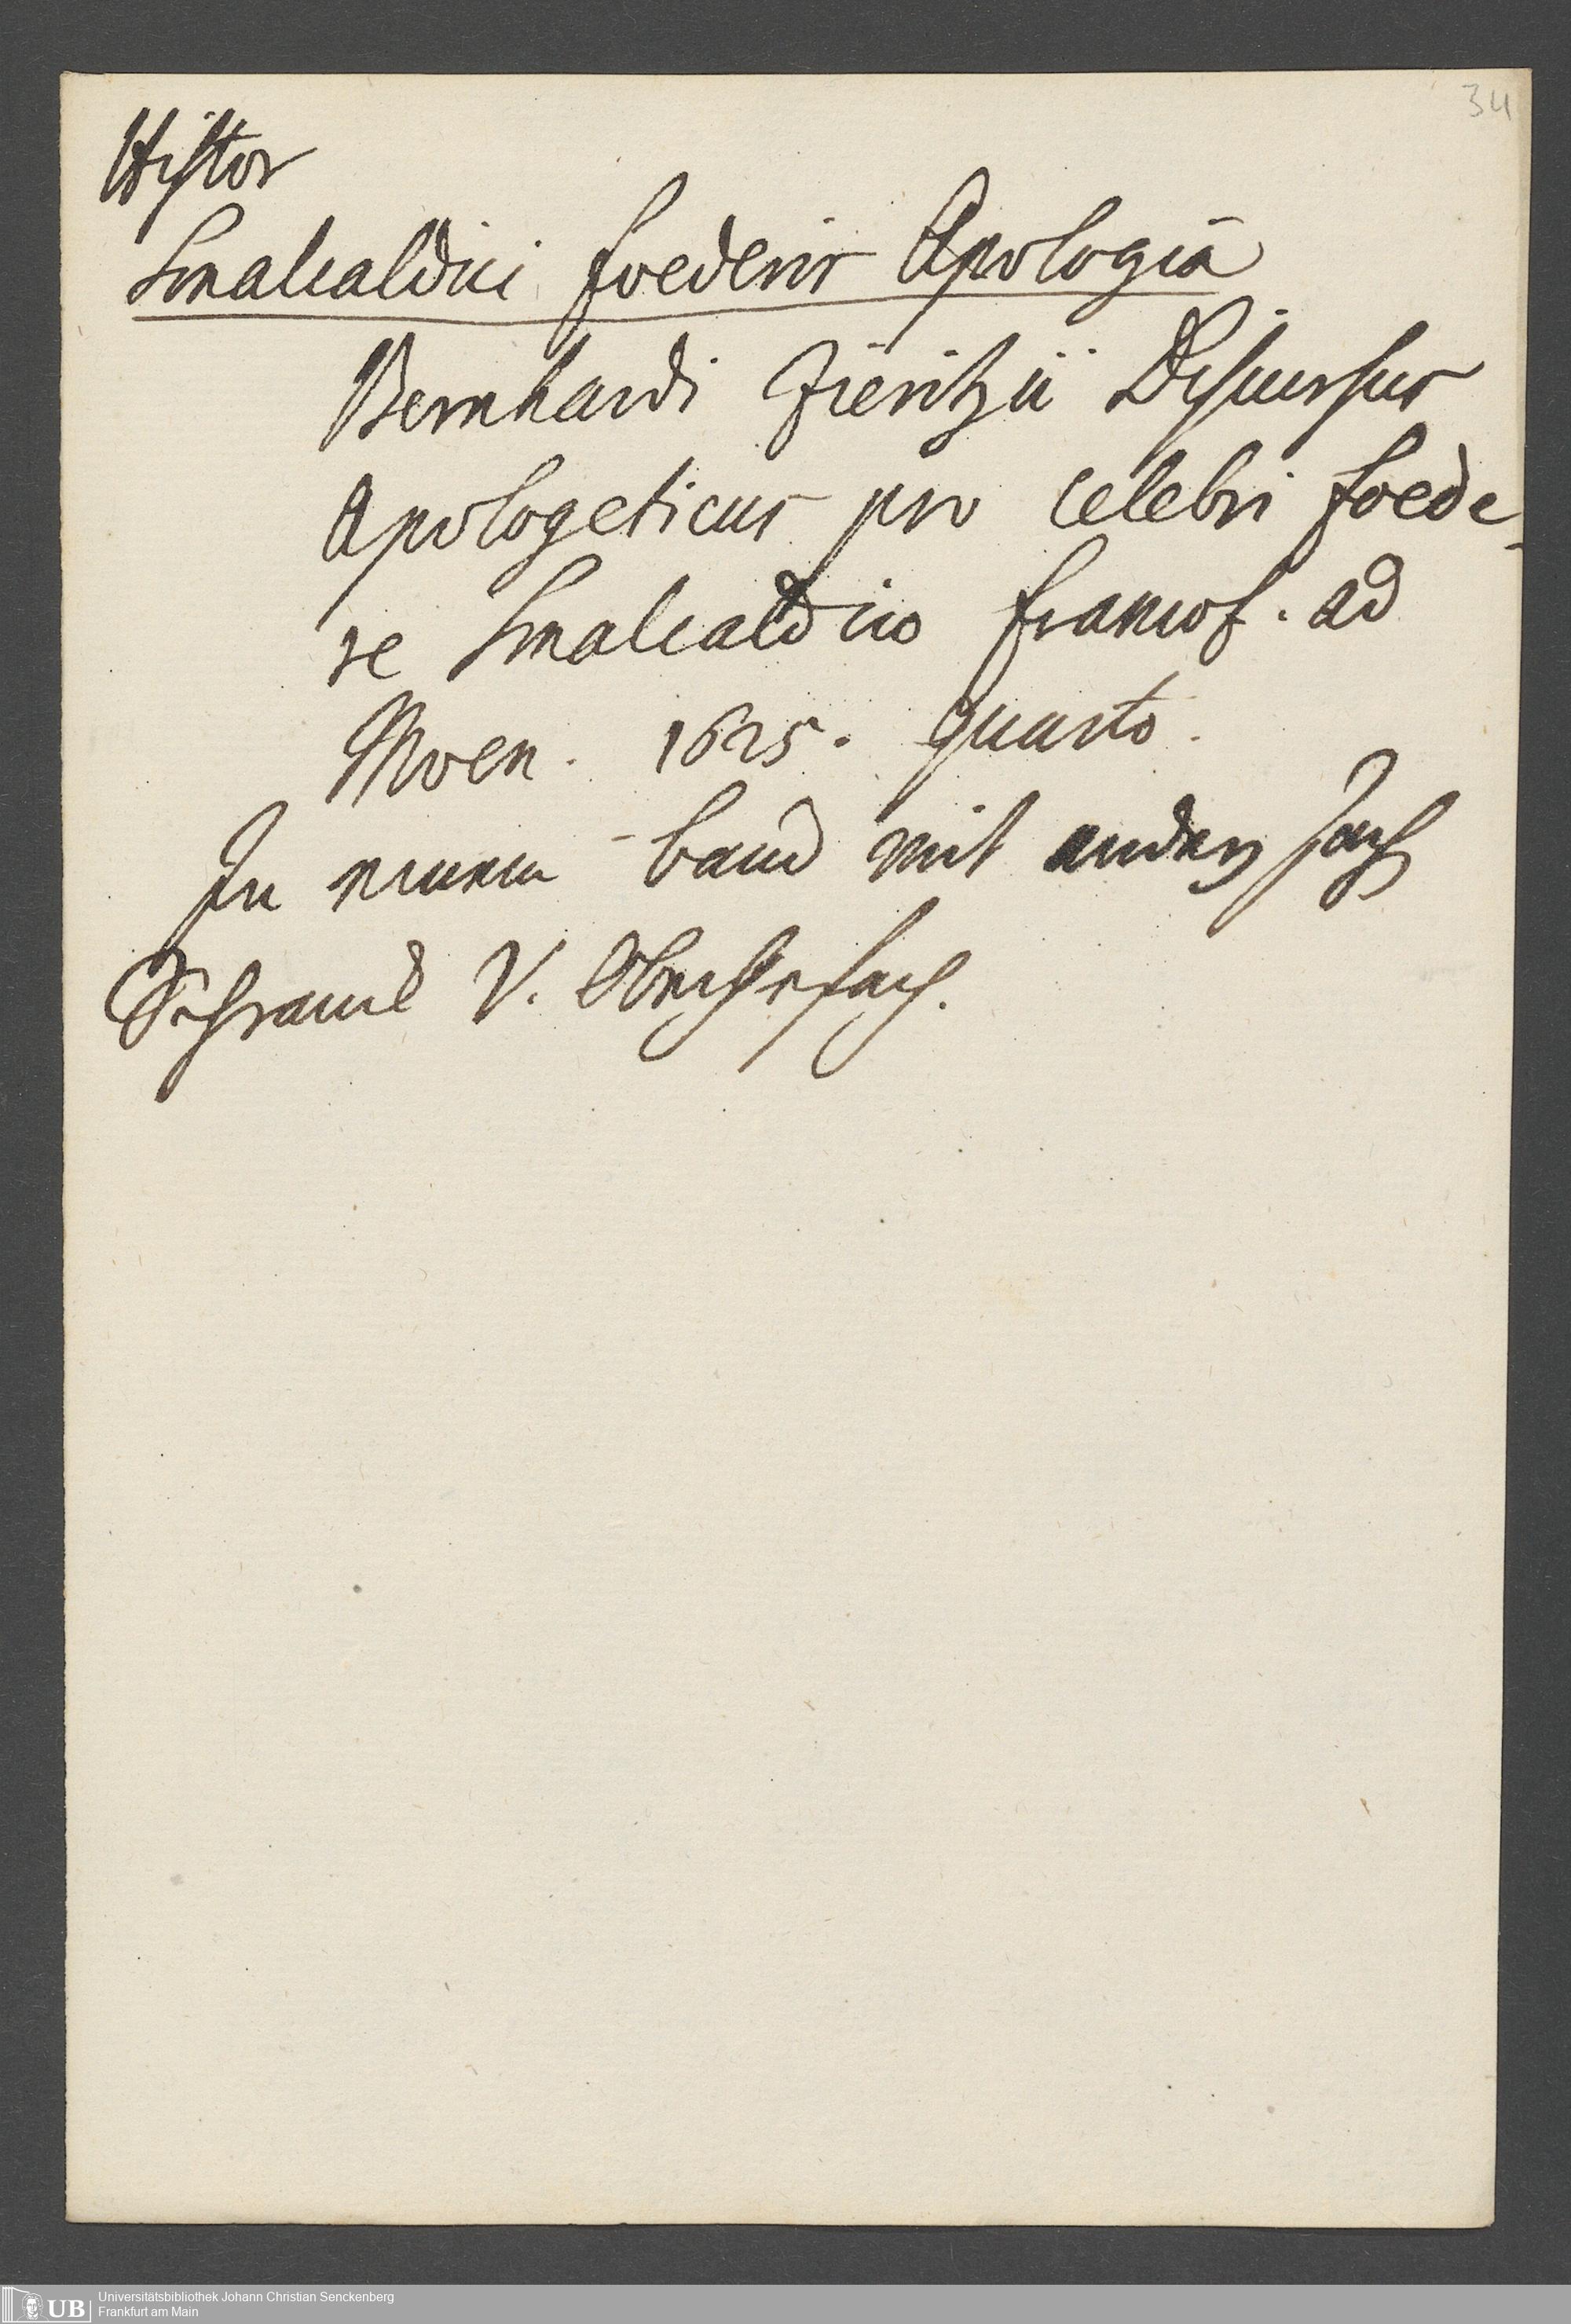 34
Histor
Smalcaldici foederis Apologia
Bernhardi Zieritzii Discursus
Apologeticus pro celebri foede-
re Smalcaldico francof. ad
Moen. 1625. quarto.
In einem band mit andern sach
Schranck V. Oberste fach.
UB Universitätsbibliothek Johann Christian Senckenberg
Frankfurt am Main